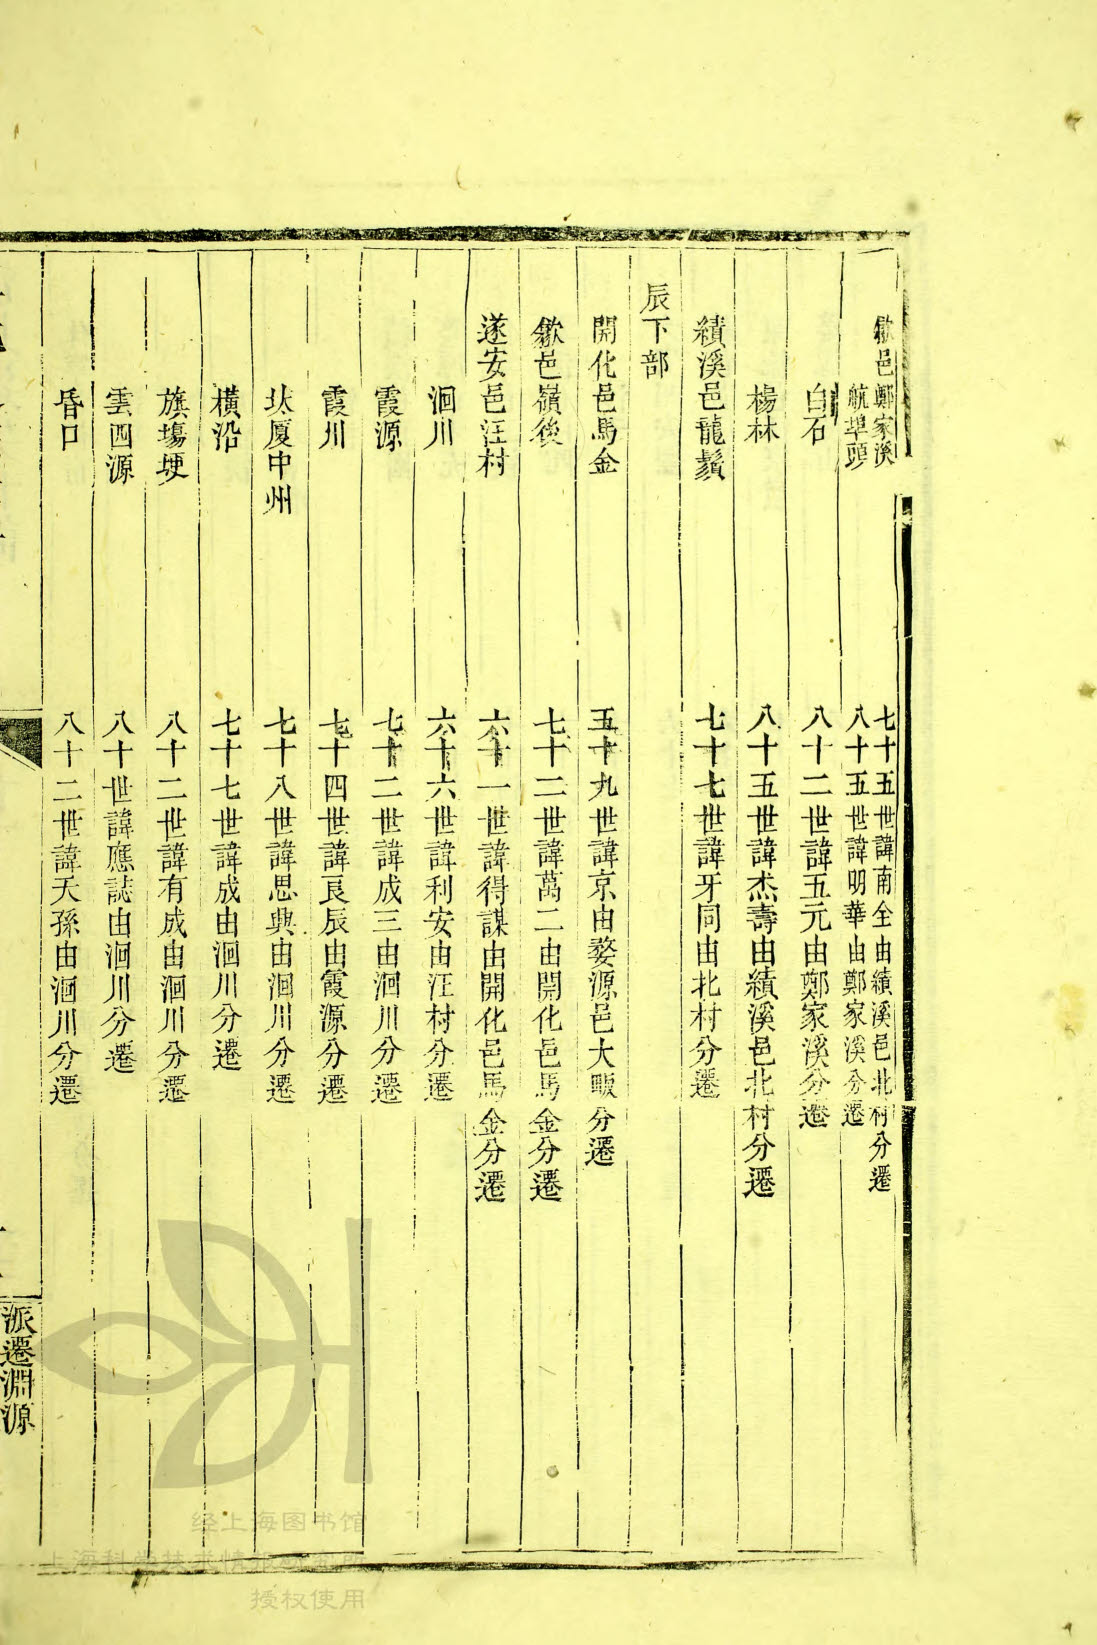 歙邑鄭家溪 七十五世諱南全由績溪邑北村分遷
航埠頭 八十五世諱明華由鄭家溪分遷
白石 八十二世諱五元由鄭家溪分遷
楊林 八十五世諱杰壽由績溪邑北村分遷
績溪邑龍鬚 七十七世諱牙同由北村分遷
辰下部
開化邑馬金 五十九世諱京由婺源邑大畈分遷
歙邑嶺後 七十二世諱萬二由開化邑馬金分遷
遂安邑汪村 六十一世諱得謀由開化邑馬金分遷
洄川 六十六世諱利安由汪村分遷
霞源 七十二世諱成三由洄川分遷
霞川 七十四世諱艮辰由霞源分遷
厦中州 七十八世諱思典由洄川分遷
橫沿 七十七世諱成由洄川分遷
旗塲埂 八十二世諱有成由洄川分遷
雲西源 八十世諱應誌由洄川分遷
昏口 八十二世諱天孫由洄川分遷
派遷淵源
经上海图书馆
上海科学技术情报研究所
授权使用